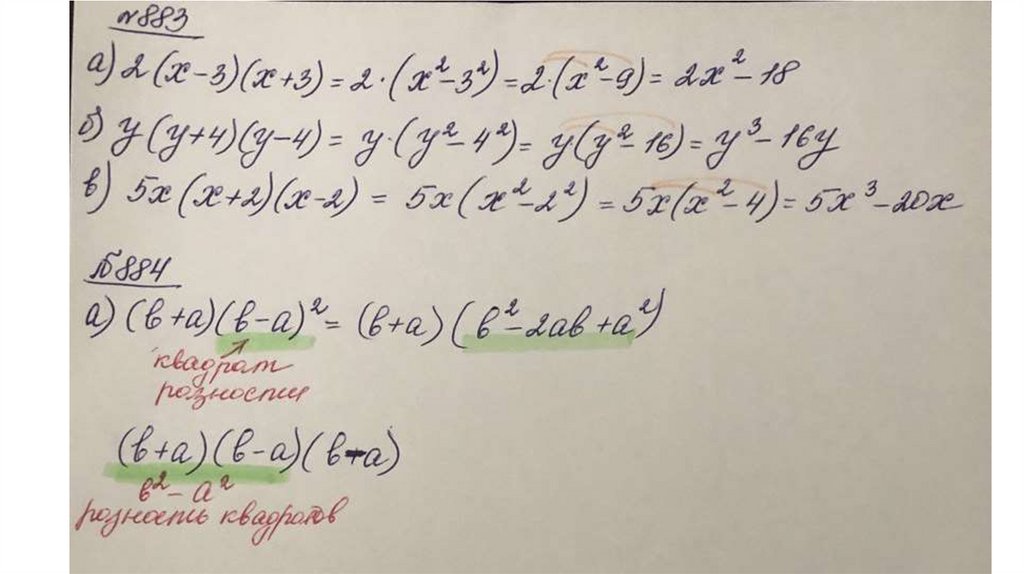 №883
а) 2(x-3)(x+3) = 2·(x²-3²) = 2·(x²-9) = 2x²-18
б) y(y+4)(y-4) = y·(y²-4²) = y·(y²-16) = y³-16y
в) 5x(x+2)(x-2) = 5x(x²-2²) = 5x(x²-4) = 5x³-20x
№884
а) (в+а)(в-а)² = (в+а)(в²-2ав+а²)
квадрат
разности
(в+а)(в-а)(в-а)
в²-а²
разность квадратов